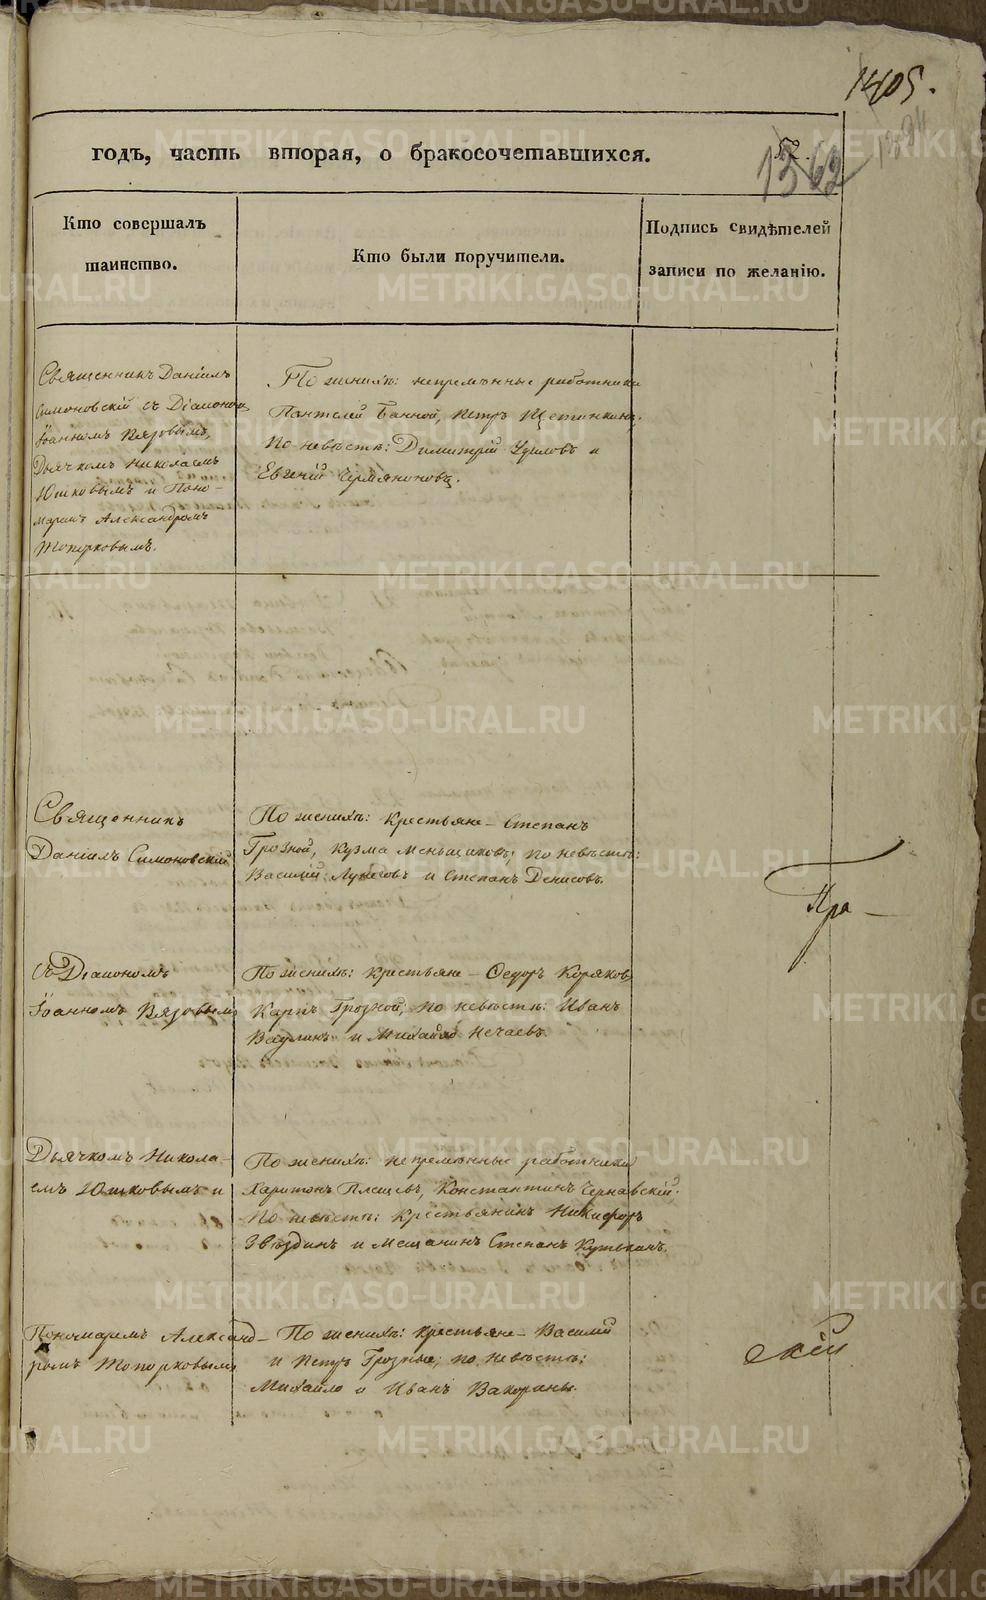 1405.
годъ, часть вторая, о бракосочетавшихся.
52.
1362
1394
Кто совершалъ
таинство.
Кто были поручители.
Подпись свидѣтелей
записи по желанію.
Священникъ Даніилъ
Симоновскій съ Діакономъ
Іоанномъ Вязовымъ,
Дьячкомъ Николаемъ
Юшковымъ и Поно-
маремъ Александромъ
Топорковымъ.
По женихѣ: непремѣнные работники
Пантелей Банной, Петръ Щетинкинъ.
По невѣстѣ: Димитрій и
Евгеній
Священникъ
Даніилъ Симоновскій
По женихѣ: крестьяне – Степанъ
Грозной, Кузма Меньщиковъ; по невѣстѣ:
Василій и Степанъ Денисовъ.
съ Діакономъ
Іоанномъ Вязовымъ
По женихѣ: крестьяне – Федоръ Коряковъ,
Карпъ Грозной; по невѣстѣ: Иванъ
и Михайло Нечаевъ.
Дьячкомъ Никола-
емъ Юшковымъ и
По женихѣ: непремѣнные работники
Харитонъ Плещевъ, Константинъ Чернавскій.
По невѣстѣ: крестьянинъ Никифоръ
Звѣздинъ и Мещанинъ Степанъ
Пономаремъ Александ-
ромъ Топорковымъ
По женихѣ: крестьяне – Василій
и Петръ Грозные; по невѣстѣ:
Михайло и Иванъ Вакорины.
Пра –
скій
METRIKI.GASO-URAL.RU